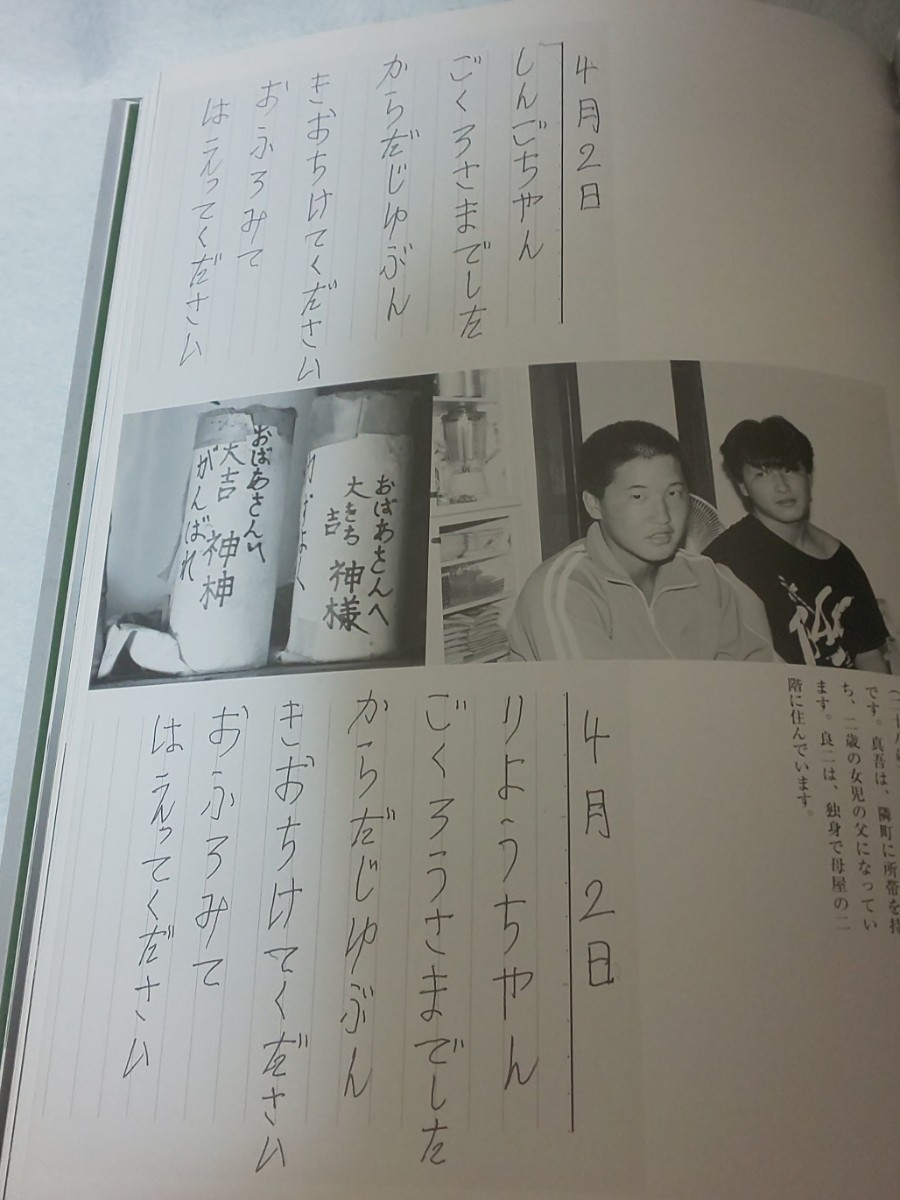 4月2日
しんごちやん
ごくろさまでした
からだじゆぶん
きおちけてください
おふろみて
はえってください
おばあさんへ
大きち 神様
吉
おばあさんへ
大吉 神神
がんばれ
です。真吾は、隣町に所帯を持
ち、二歳の女児の父になってい
ます。良二は、独身で母屋の二
階に住んでいます。
4月2日
りようちやん
ごくろうさまでした
からだじゆぶん
きおちけてください
おふろみて
はえってください